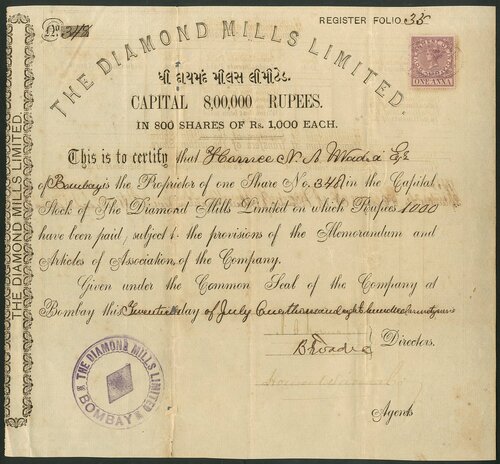 REGISTER FOLIO 35
No. 345
THE DIAMOND MILLS LIMITED.
ધી દાયમંદ મીલસ લીમીટેડ.
CAPITAL 8,00,000 RUPEES.
IN 800 SHARES OF Rs. 1,000 EACH.
ONE ANNA
This is to certify that N. A. Wadia Esqr
of Bombay is the Proprietor of one Share No. 345 in the Capital
Stock of The Diamond Mills Limited on which Rupees 1000
have been paid, subject to the provisions of the Memorandum and
Articles of Association, of the Company.
Given under the Common Seal of the Company at
Bombay this Twentieth day of July One thousand eight hundred
Directors.
Agents
THE DIAMOND MILLS LIMITED
BOMBAY
THE DIAMOND MILLS LIMITED.